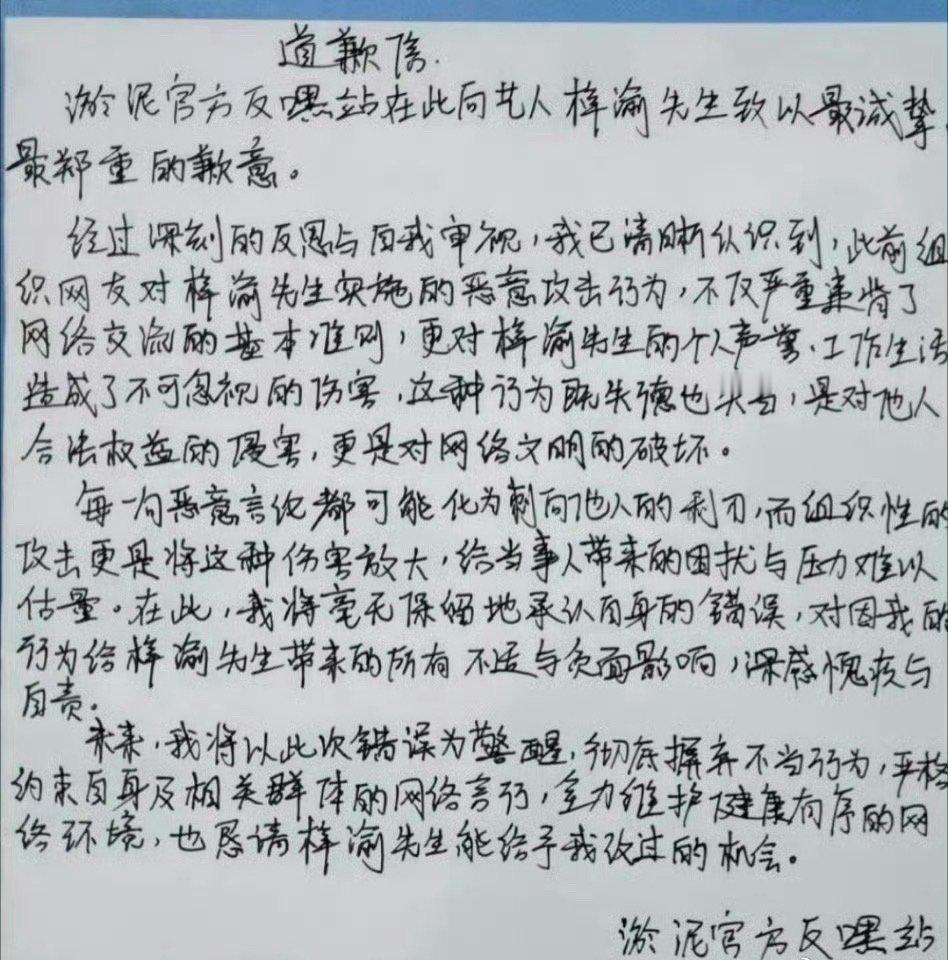 道歉信.
淤泥官方反嘿站在此向艺人梓渝先生致以最诚挚
最郑重的歉意。
经过深刻的反思与自我审视，我已清晰认识到，此前组
织网友对梓渝先生实施的恶意攻击行为，不仅严重违背了
网络交流的基本准则，更对梓渝先生的个人声誉、工作生活
造成了不可忽视的伤害，这种行为既失德也失当，是对他人
合法权益的侵害，更是对网络文明的破坏。
每一句恶意言论都可能化为刺向他人的利刃，而组织性的
攻击更是将这种伤害放大，给当事人带来的困扰与压力难以
估量。在此，我将毫无保留地承认自身的错误，对因我的
行为给梓渝先生带来的所有不适与负面影响，深感愧疚与
自责。
未来，我将以此次错误为警醒，彻底摒弃不当行为，严格
约束自身及相关群体的网络言行，全力维护健康有序的网
络环境，也恳请梓渝先生能给予我改过的机会。
淤泥官方反嘿站